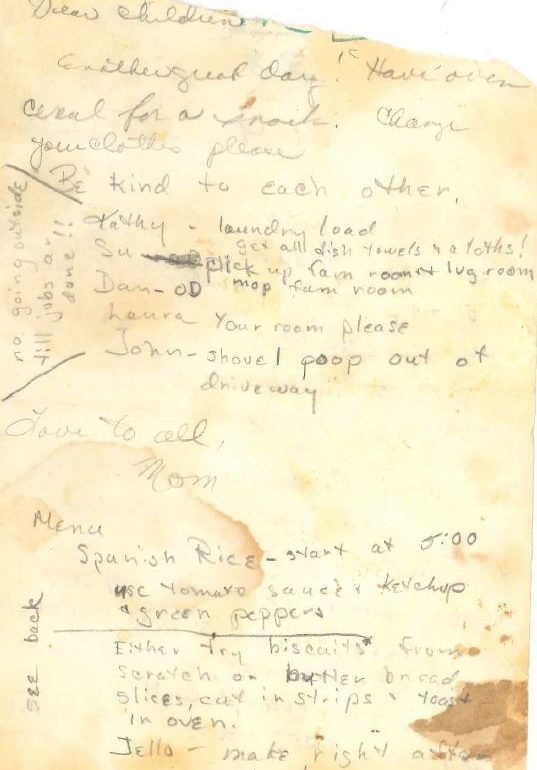 Dear Children
Another great day! Have oven
cereal for a snack. Change
your clothes please
Be kind to each other.
no going outside
till jobs are
done!!
Kathy - laundry load
get all dish towels & cloths!
Su - pick up fam room & lvg room
Dan - OD mop fam room
Laura Your room please
John - shovel poop out of
driveway
Love to all,
Mom
Menu
Spanish Rice - start at 5:00
use tomato sauce & ketchup
& green peppers
see back
Either try biscuits from
scratch or butter bread
slices, cut in strips & toast
in oven.
Jello - make right after